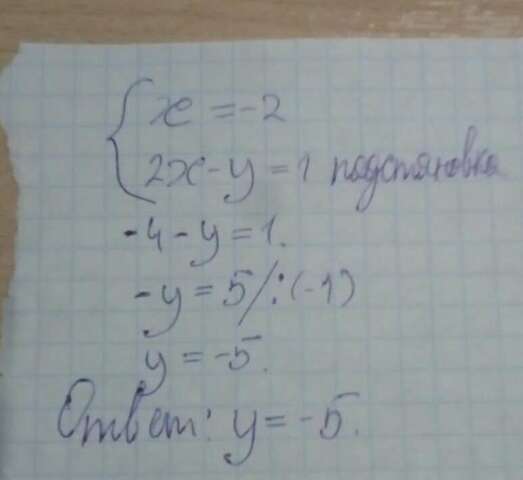 x = -2
2x - y = 1 подстановка
-4 - y = 1.
-y = 5 /:(-1)
y = -5.
Ответ: y = -5.